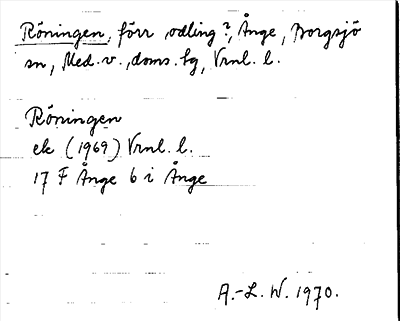 Röningen, förr odling?, Ånge, Borgsjö
sn, Med. v., doms. bg, Vrnl. l.
Röningen
ek (1969) Vrnl. l.
17 F Ånge 6 i Ånge
A.-L. W. 1970.